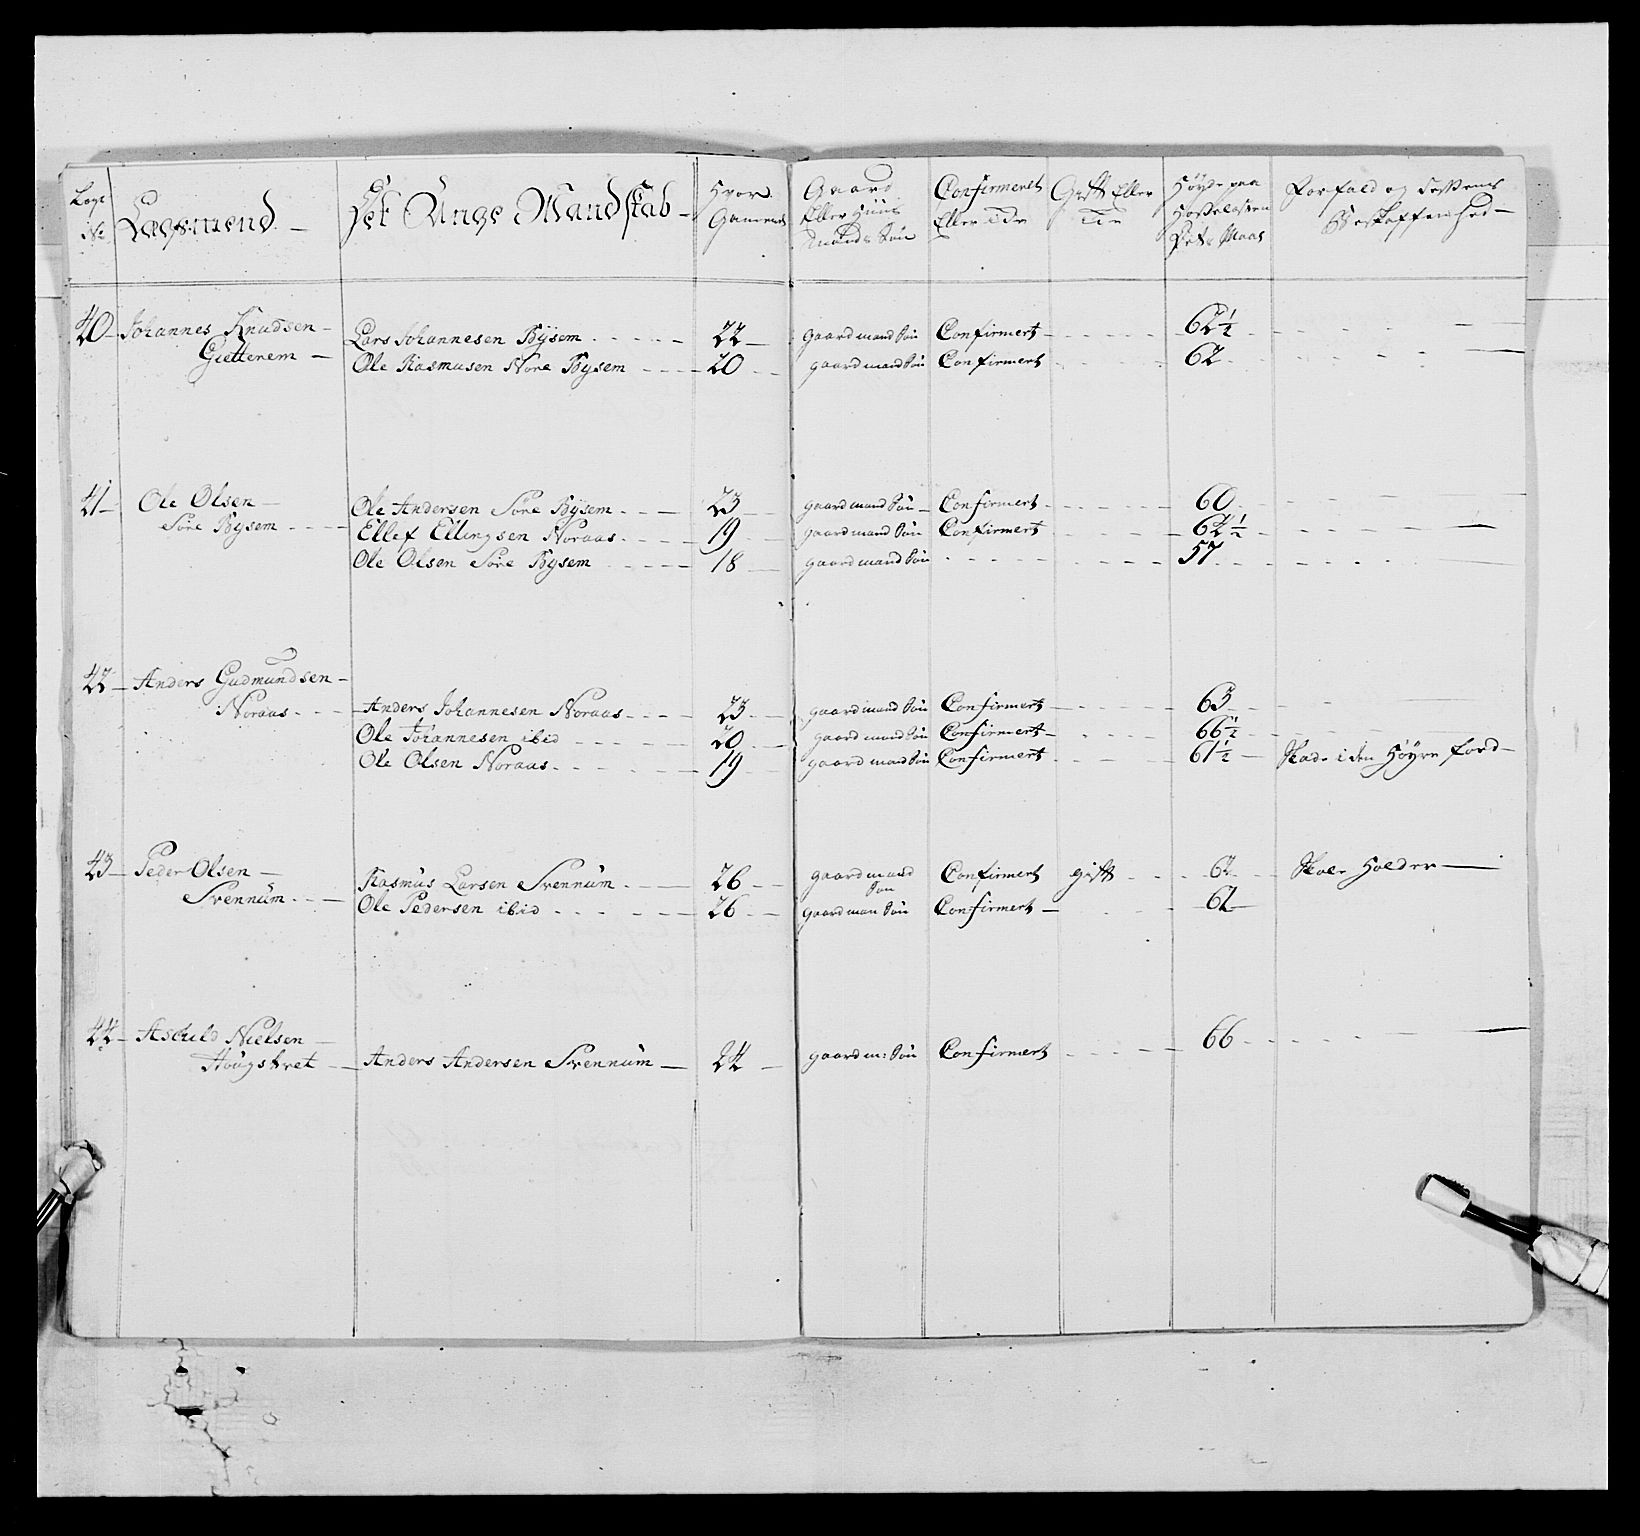 Lægs No Lægsmend Det Unge Mandskab Hvor Gammel Gaard Eller Huus Mands Søn Confirmeret Eller Ei Gift Eller Ei Høyde paa Maas Forfald og dessens Beskaffenhed
40 Johannes Knudsen
Lars Johannesen Bÿsem 22 gaardmand Søn Confirmert 62½
Gietterem
Ole Rasmusen Nore Bÿsem 20 gaardmand Søn Confirmert 62
41 Ole Olsen
Ole Andersen Søre Bÿsem 23 gaardmand Søn Confirmert 60
Søre Bysem
Ellef Ellingsen Noraas 19 gaardmand Søn Confirmert 62½
Ole Olsen Søre Bÿsem 18 gaardmand Søn 57
42 Anders Gudmundsen
Noraas Anders Johannesen Noraas 23 gaardmand Søn Confirmert 63
Ole Johannesen ibid 20 gaardmand Søn Confirmert 66½
Ole Olsen Noraas 19 gaardmand Søn Confirmert 61½ Skade i den Høyre Food
43 Peder Olsen
Rasmus Larsen Svennüm 26 gaardmand Søn Confirmert gift 62 Skole Holder
Svennüm
Ole Pedersen ibid 26 gaardman Søn Confirmert 62
44 Aschild Nielsen
Anders Andersen Svennüm 24 gaardm: Søn Confirmert 66